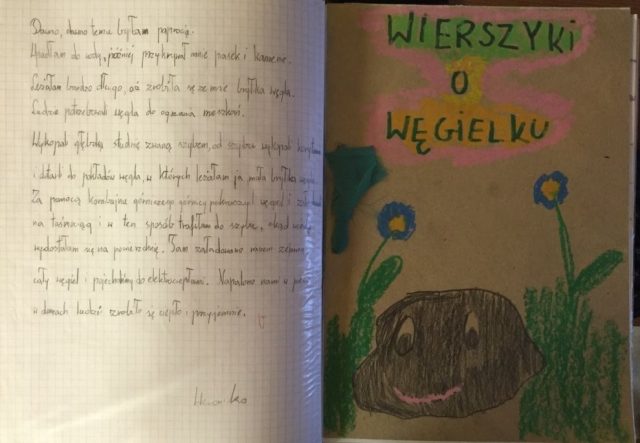 Dawno, dawno temu byłam paprocią.
Upadłam do wody, później przykrył mnie piasek i kamienie.
Leżałam bardzo długo, aż zrobiła się ze mnie bryłka węgla.
Ludzie potrzebowali węgla do ogrzania mieszkań.
Wykopali głęboką studnię zwaną szybem, od szybu wykopali korytarze
i dotarli do pokładów węgla, w których leżałam ja, mała bryłka węgla.
Za pomocą kombajna górniczego górnicy pokruszyli węgiel i
na taśmociąg i w ten sposób trafiłam do szybu, skąd
wydostałam się na powierzchnię. Tam załadowano razem ze mną
cały węgiel i pojechaliśmy do elektrociepłowni. Napalono nami w
w domach ludzi zrobiło się ciepło i przyjemnie.
WIERSZYKI
O
WĘGIELKU